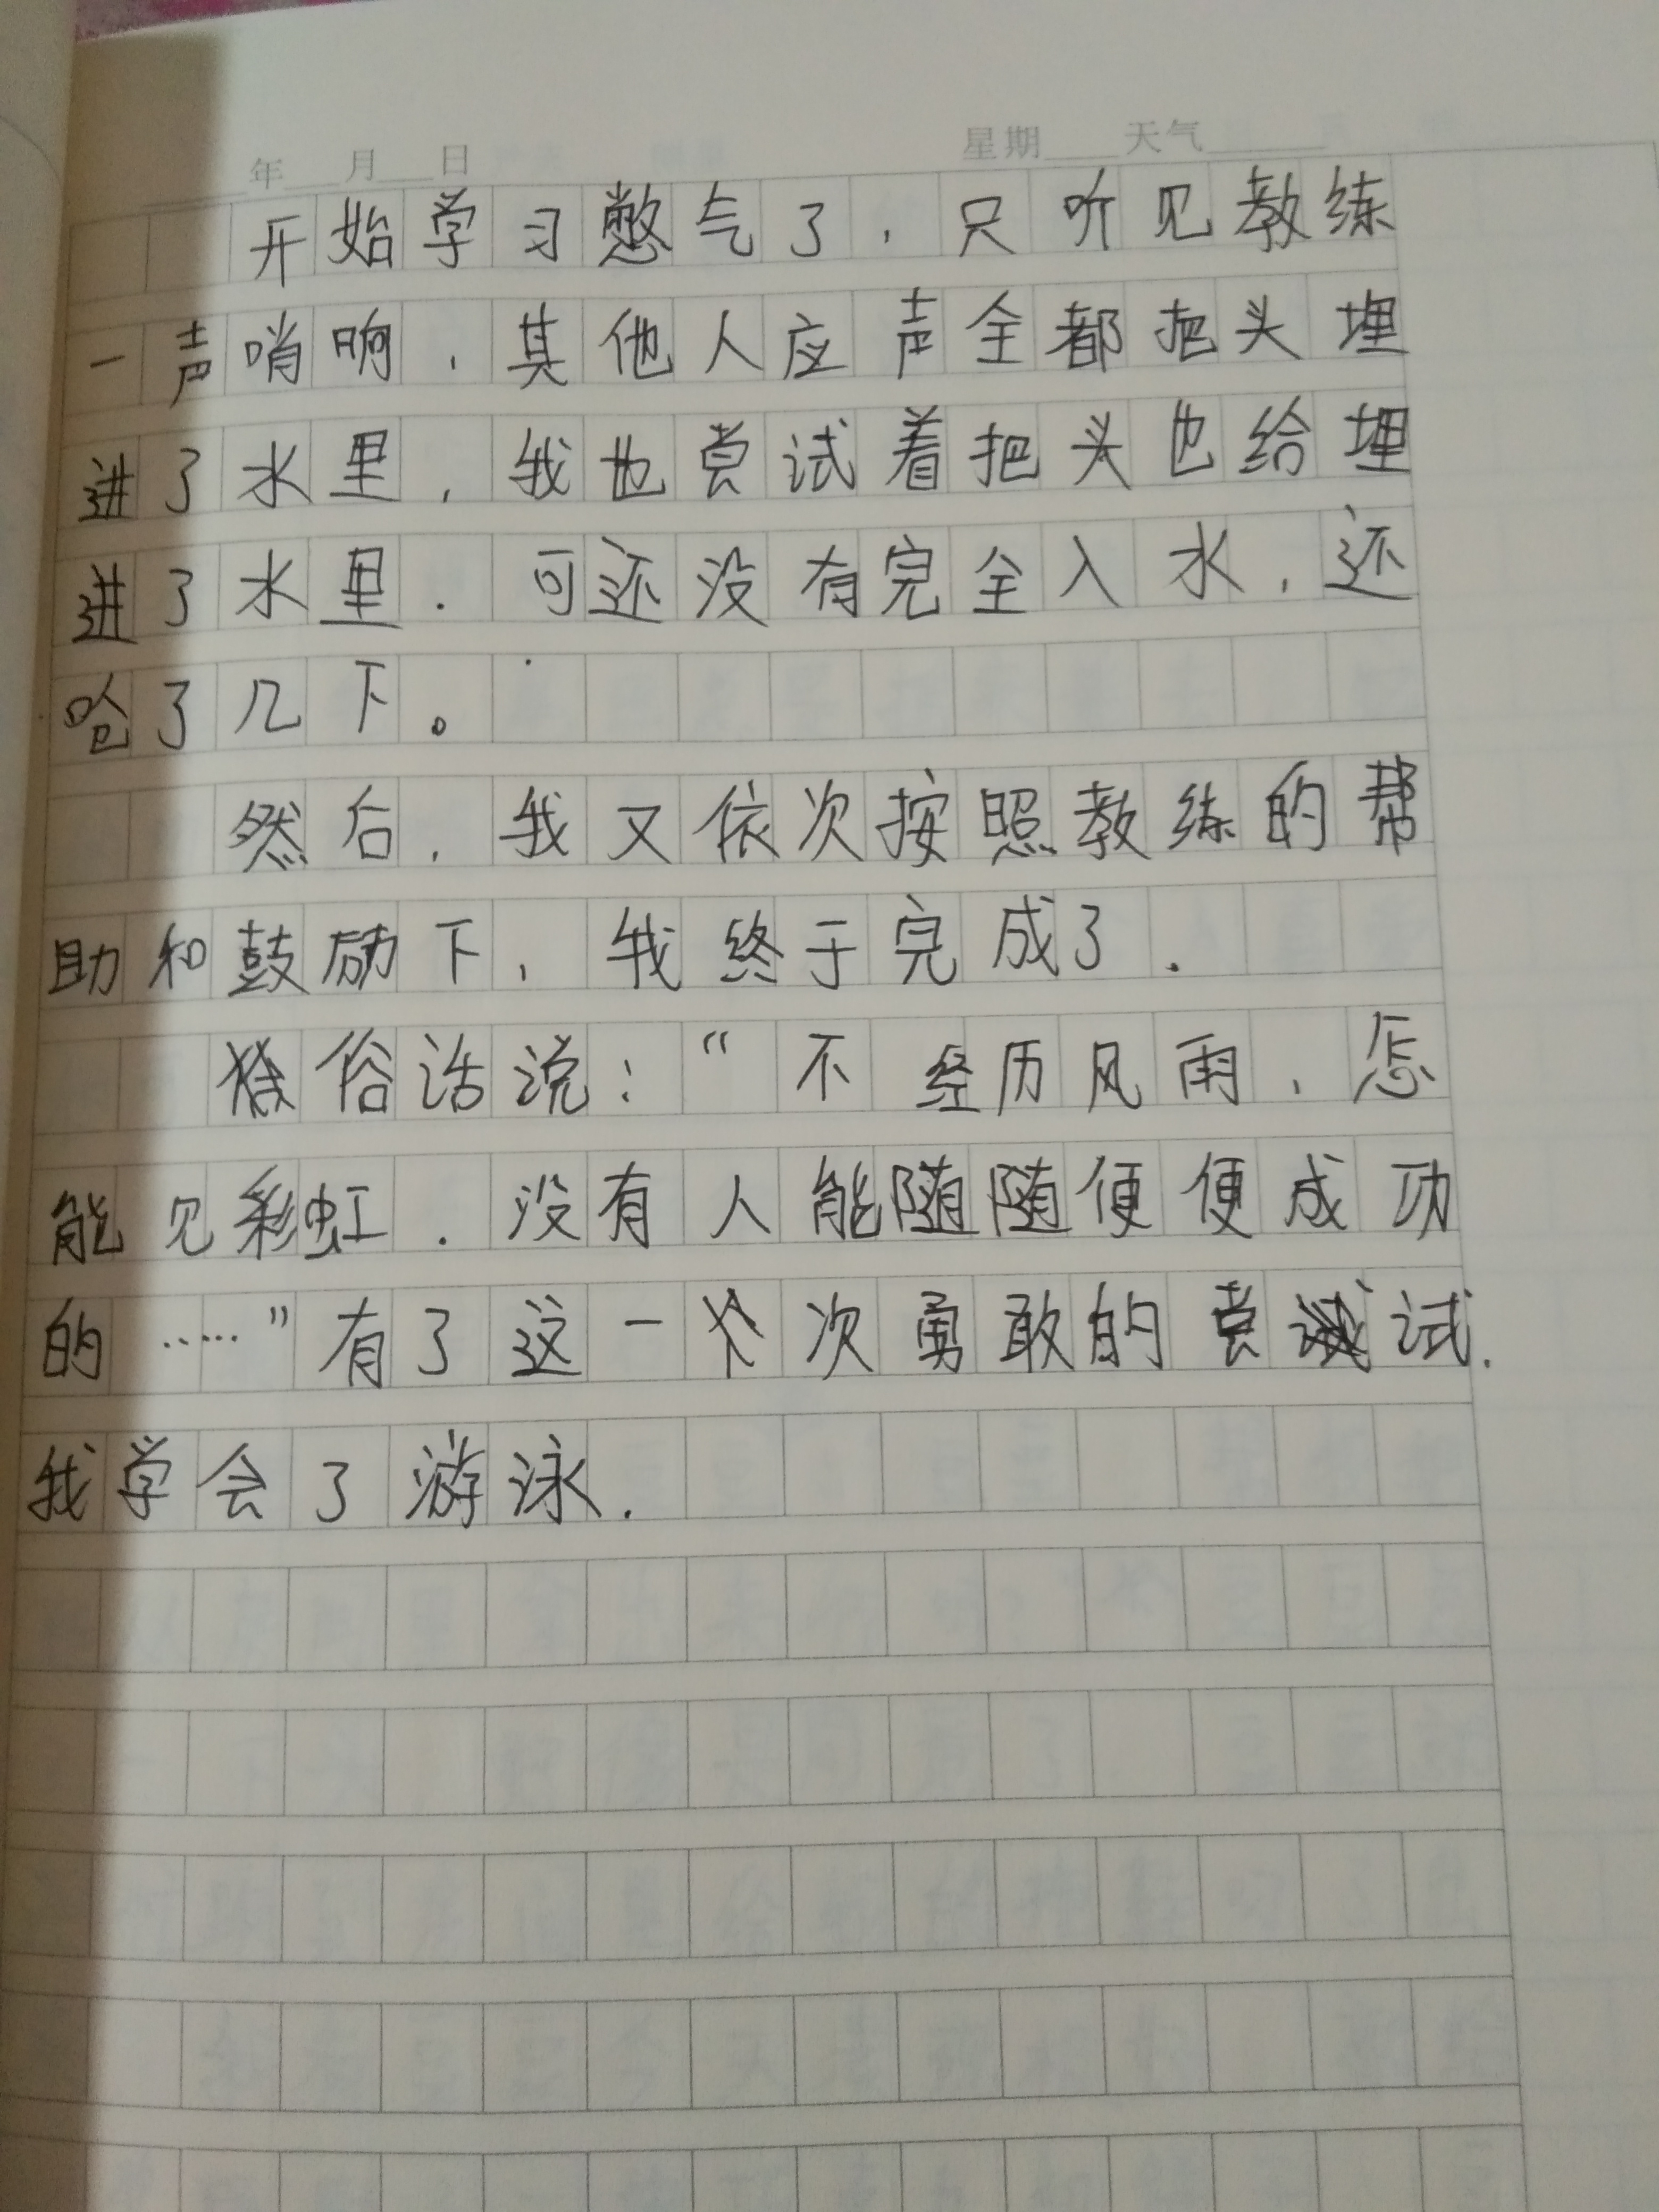 年 月 日 星期 天气
开始学习憋气了，只听见教练
一声哨响，其他人应声全都把头埋
进了水里，我也尝试着把头也给埋
进了水里．可还没有完全入水，还
呛了几下。
然后，我又依次按照教练的帮
助和鼓励下，我终于完成了．
俗话说：“不经历风雨，怎
能见彩虹．没有人能随随便便成功
的……”有了这一次勇敢的尝试．
我学会了游泳．